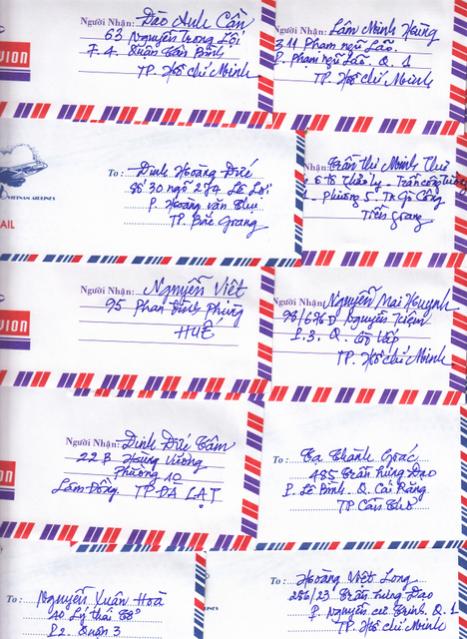 VION
Người Nhận: Đào Anh Cần
63 Nguyễn Trọng Lội
F.4 Quận Tân Bình
TP. Hồ Chí Minh
Lâm Minh Hưng
Người Nhận:
311 Phạm ngũ Lão
P. Phạm ngũ Lão. Q. 1
TP. Hồ Chí Minh
VIETNAM AIRLINES
AIL
To: Đinh Hoàng Đức
Số 30 ngõ 274 Lê Lợi
P. Hoàng Văn Thụ
TP. Bắc Giang
Trần Thị Minh Thư
Phường 5. TX Gò Công
Tiền Giang
VION
Người Nhận: Nguyễn Viết
95 Phan Đình Phùng
HUẾ
Người Nhận: Nguyễn Mai Huỳnh
Nguyễn Kiệm
F.3. Q. Gò Vấp
TP. Hồ Chí Minh
ION
Người Nhận: Đinh Đức Tâm
22B Hùng Vương
Phường 10
Lâm Đồng. TP ĐA LẠT
To: Tạ Thành
485 Trần Hưng Đạo
P. Lê Bình. Q. Cái Răng
TP Cần Thơ
To: Nguyễn Xuân Hoà
40 Lý Thái Tổ
P2. Quận 3
To: Hoàng Việt Long
256/23 Trần Hưng Đạo
P. Nguyễn Cư Trinh. Q. 1
TP. Hồ Chí Minh